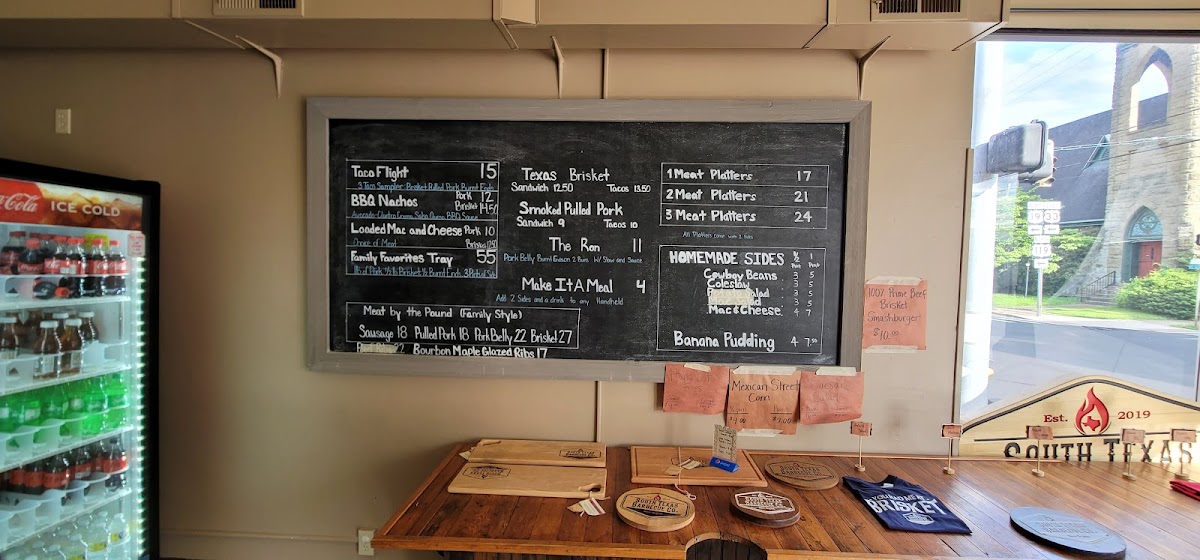 Coca-Cola
ICE COLD
Taco Flight 15
3 Taco Sampler Brisket Pulled Pork Burnt Ends
BBQ Nachos Pork 12
Brisket 14.50
Avocado-Cilantro Crema, Salsa, Queso, BBQ Sauce
Loaded Mac and Cheese Pork 10
Choice of Meat Brisket
Family Favorites Tray 55
1 lb of Pork ½ lb Brisket ½ Burnt Ends 3
Meat by the Pound (Family Style)
Sausage 18 Pulled Pork 18 Pork Belly 22 Brisket 27
22 Bourbon Maple Glazed Ribs 17
Texas Brisket
Sandwich 12.50 Tacos 13.50
Smoked Pulled Pork
Sandwich 9 Tacos 10
The Ron 11
Pork Belly Burnt Ends on 2 Buns W/ Slaw and Sauce
Make It A Meal 4
Add 2 Sides and a drink to any Handheld
1 Meat Platters 17
2 Meat Platters 21
3 Meat Platters 24
All Platters come with 2 Sides
HOMEMADE SIDES ½ Pint 1 Pint
Cowboy Beans 3 5
Coleslaw 3 5
3 5
3 5
Mac & Cheese 4 7
Banana Pudding 4 7.50
100% Prime Beef
Brisket
Smashburger
$10.00
Mexican Street
Corn
Est. 2019
SOUTH TEXAS
SOUTH TEXAS
BARBECUE CO.
YOU HAD ME AT
BRISKET